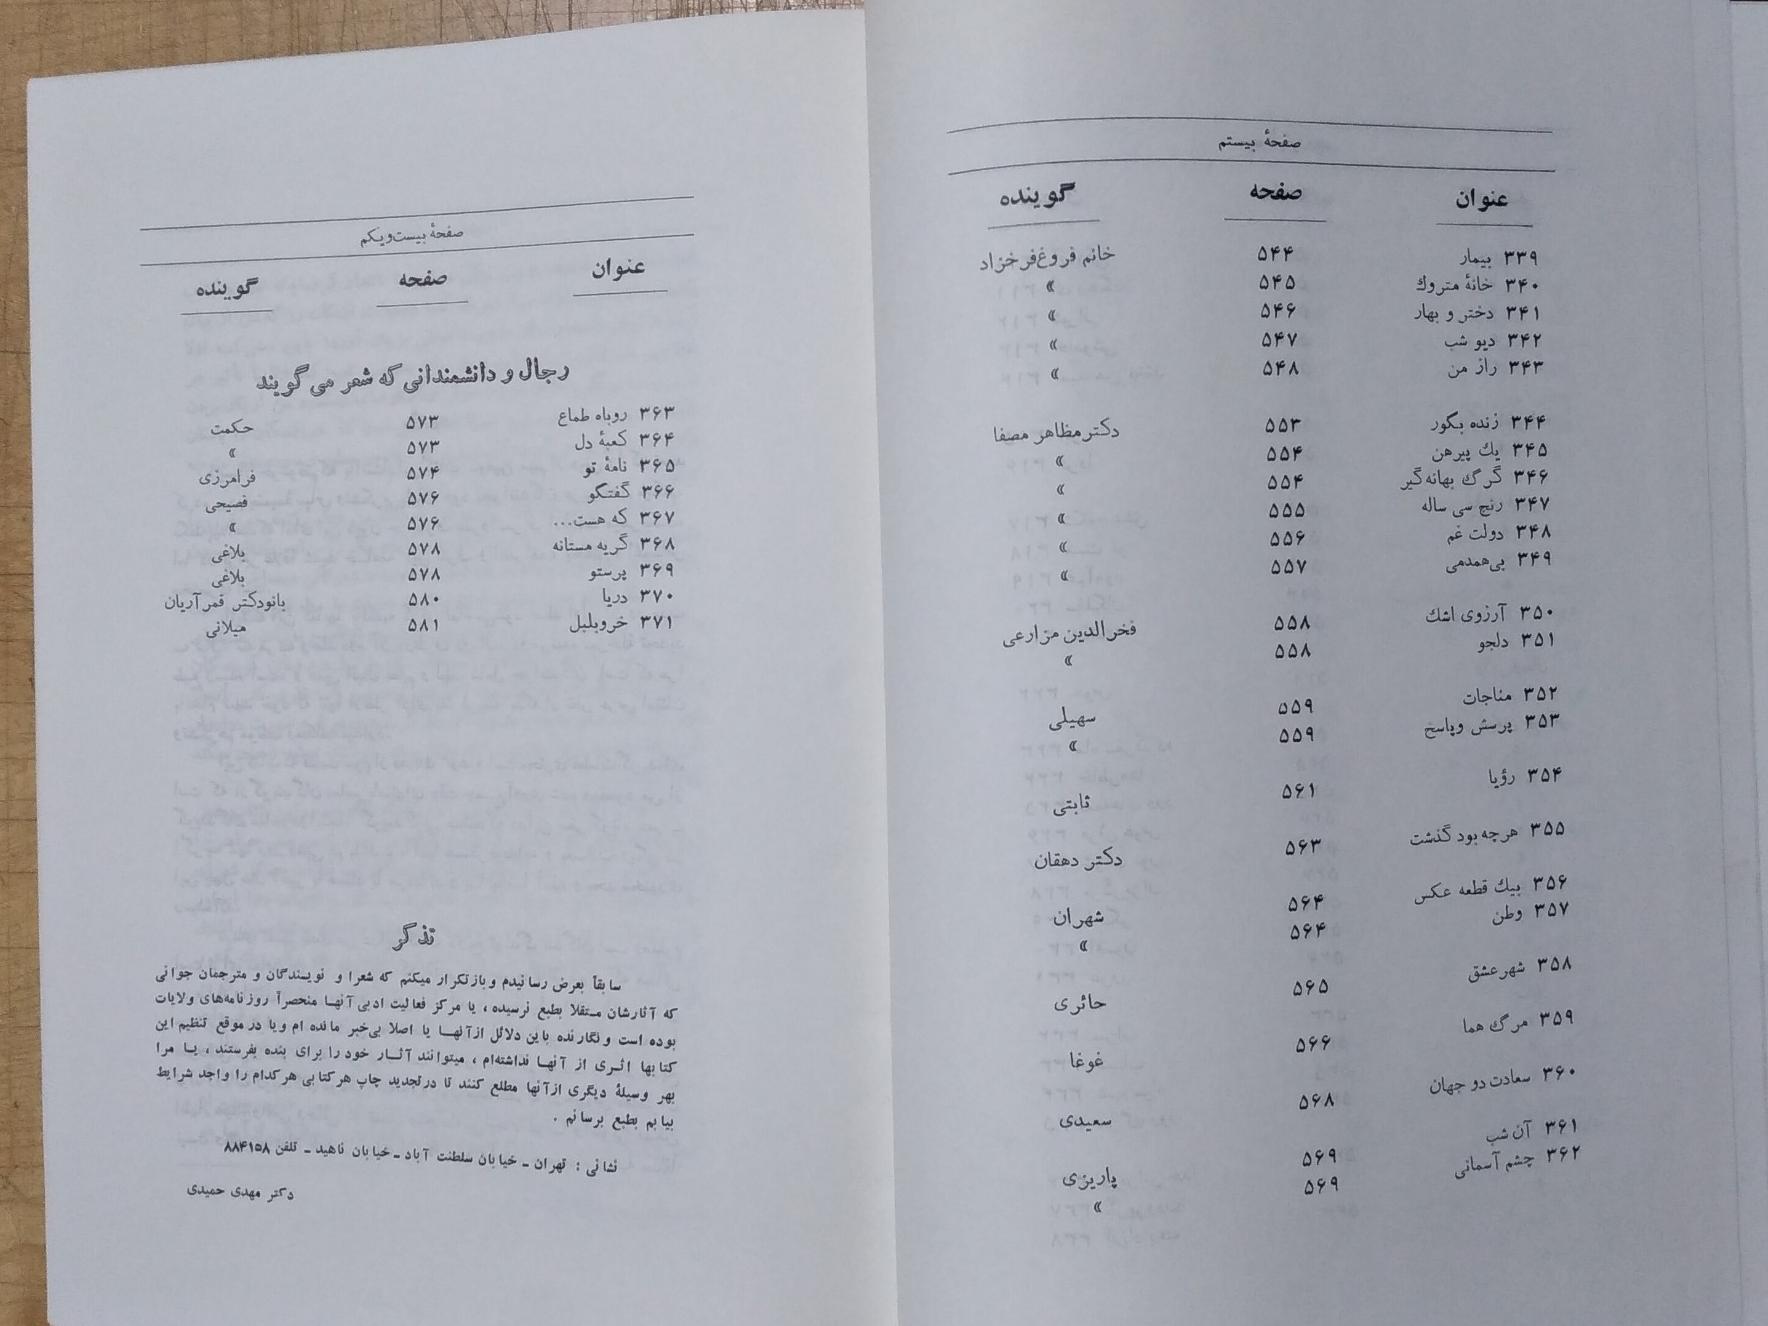 صفحهٔ بیستم
عنوان صفحه گوینده
۳۳۹ بیمار ۵۴۴ خانم فروغ فرخزاد
۳۴۰ خانهٔ متروك ۵۴۵ »
۳۴۱ دختر و بهار ۵۴۶ »
۳۴۲ دیو شب ۵۴۷ »
۳۴۳ راز من ۵۴۸ »
۳۴۴ زنده بگور ۵۵۳ دکتر مظاهر مصفا
۳۴۵ یك پیرهن ۵۵۴ »
۳۴۶ گرگ بهانه‌گیر ۵۵۴ »
۳۴۷ رنج سی ساله ۵۵۵ »
۳۴۸ دولت غم ۵۵۶ »
۳۴۹ بی‌همدمی ۵۵۷ »
۳۵۰ آرزوی اشك ۵۵۸ فخرالدین مزارعی
۳۵۱ دلجو ۵۵۸ »
۳۵۲ مناجات ۵۵۹ سهیلی
۳۵۳ پرسش وپاسخ ۵۵۹ »
۳۵۴ رؤیا ۵۶۱ ثابتی
۳۵۵ هرچه بود گذشت ۵۶۳ دکتر دهقان
۳۵۶ بیك قطعه عکس ۵۶۴ شهران
۳۵۷ وطن ۵۶۴ »
۳۵۸ شهر عشق ۵۶۵ حائری
۳۵۹ مرگ هما ۵۶۶ غوغا
۳۶۰ سعادت دو جهان ۵۶۸ سعیدی
۳۶۱ آن شب ۵۶۹ پاریزی
۳۶۲ چشم آسمانی ۵۶۹ »
صفحهٔ بیست‌ویکم
عنوان صفحه گوینده
رجال و دانشمندانی که شعر می گویند
۳۶۳ روباه طماع ۵۷۳ حکمت
۳۶۴ کعبهٔ دل ۵۷۳ »
۳۶۵ نامهٔ تو ۵۷۴ فرامرزی
۳۶۶ گفتگو ۵۷۶ فصیحی
۳۶۷ که هست... ۵۷۶ »
۳۶۸ گریه مستانه ۵۷۸ بلاغی
۳۶۹ پرستو ۵۷۸ بلاغی
۳۷۰ دریا ۵۸۰ بانودکتر قمر آریان
۳۷۱ خروبلبل ۵۸۱ میلانی
تذکر
سابقاً بعرض رسانیدم وبازتکرار میکنم که شعرا و نویسندگان و مترجمان جوانی
که آثارشان مستقلا بطبع نرسیده ، یا مرکز فعالیت ادبی آنها منحصراً روزنامه‌های ولایات
بوده است و نگارنده باین دلائل ازآنهـا یا اصلا بی‌خبر مانده ام ویا در موقع تنظیم این
کتابها اثـری از آنهـا نداشته‌ام ، میتوانند آثـار خود را برای بنده بفرستند ، یـا مرا
بهر وسیلهٔ دیگری ازآنها مطلع کنند تا درتجدید چاپ هرکتابی هرکدام را واجد شرایط
بیابم بطبع برسانم .
نشانی : تهران ـ خیابان سلطنت آباد ـ خیابان ناهید ـ تلفن ۸۸۴۱۵۸
دکتر مهدی حمیدی